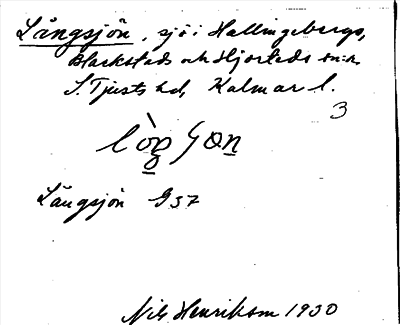 Långsjön, sjö i Hallingebergs,
Blackstads och Hjorteds sn:r,
S. Tjusts hd, Kalmar l.
3
Långsjön G 37
Nils Henrikson 1930